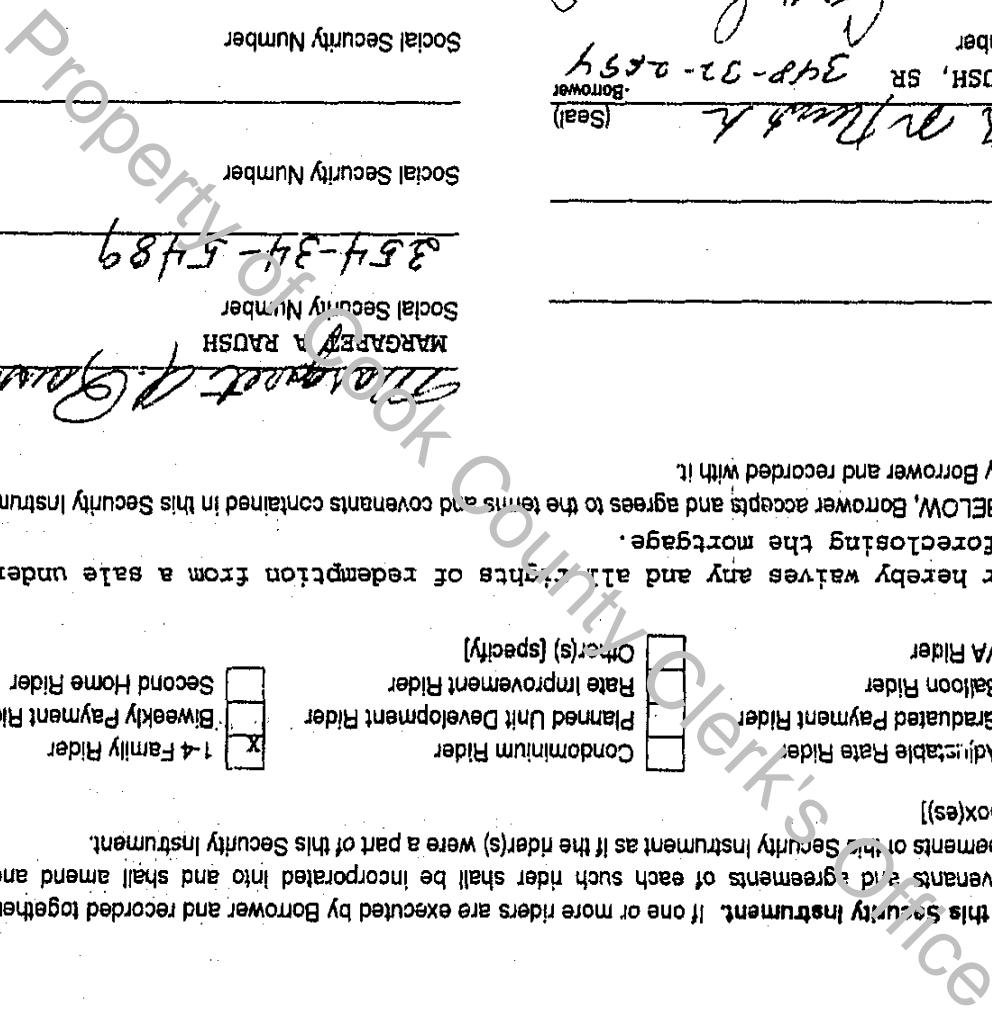 this Security Instrument. If one or more riders are executed by Borrower and recorded together
venants and agreements of each such rider shall be incorporated into and shall amend and
eements of this Security Instrument as if the rider(s) were a part of this Security Instrument.
box(es)]
Adjustable Rate Rider Condominium Rider X 1-4 Family Rider
Graduated Payment Rider Planned Unit Development Rider Biweekly Payment
Balloon Rider Rate Improvement Rider Second Home Rider
VA Rider Other(s) [specify]
hereby waives any and all rights of redemption from a sale under
foreclosing the mortgage.
BELOW, Borrower accepts and agrees to the terms and covenants contained in this Security
Borrower and recorded with it.
Margaret A. Raush
MARGARET A RAUSH
Social Security Number
[SSN omitted]
Social Security Number
(Seal)
-Borrower
SR [SSN omitted]
Social Security Number
Property of Cook County Clerk's Office